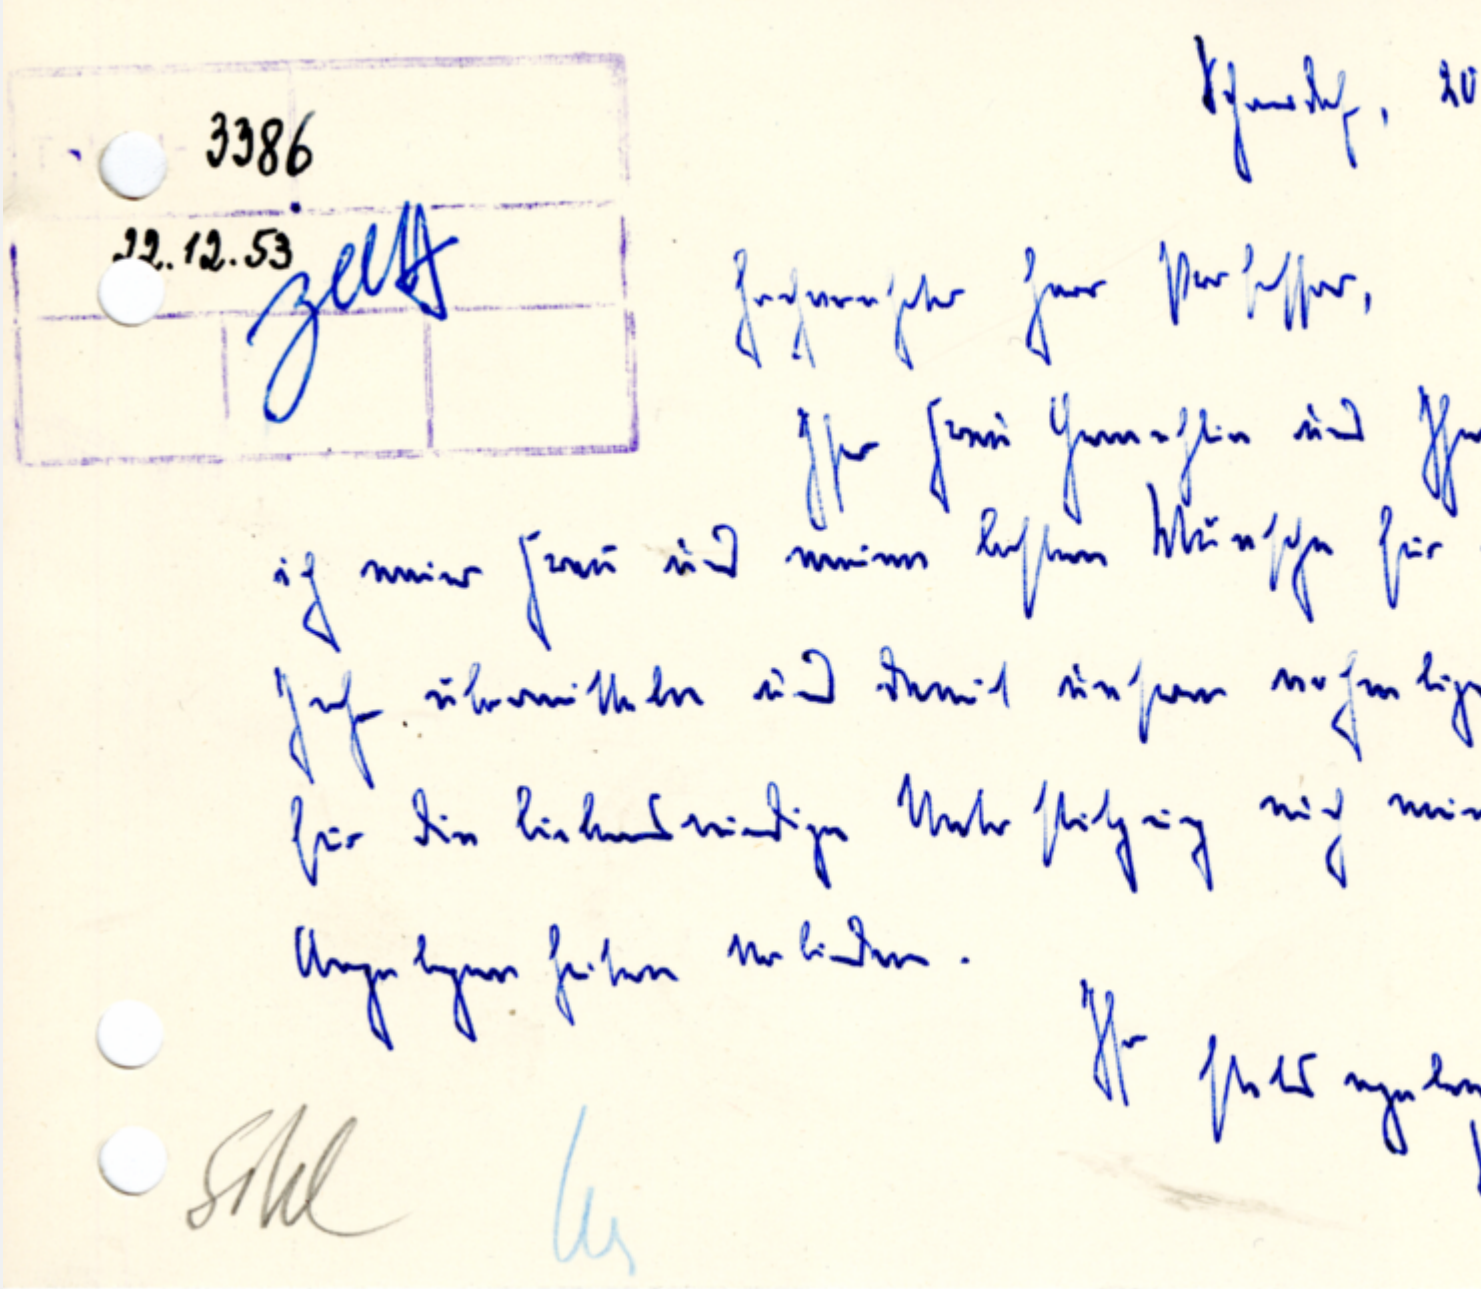 3386
22.12.53
20
Hochverehrter Herr Professor,
Ihrer Frau Gemahlin und Ihnen
ich meiner Frau und meine besten Wünsche für
Jahr übermitteln und damit unseren nochmaligen
für die liebenswürdige Unterstützung auch
Angelegenheiten verbinden.
Ihr stets ergebener